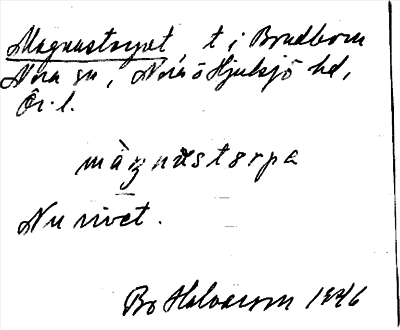 Magnustorpet, t i Bondborn
Nora sn, Nora o Hjulsjö hd,
Ör. l.
màgnustorpa
Nu rivet.
Bo Halvarson 1946